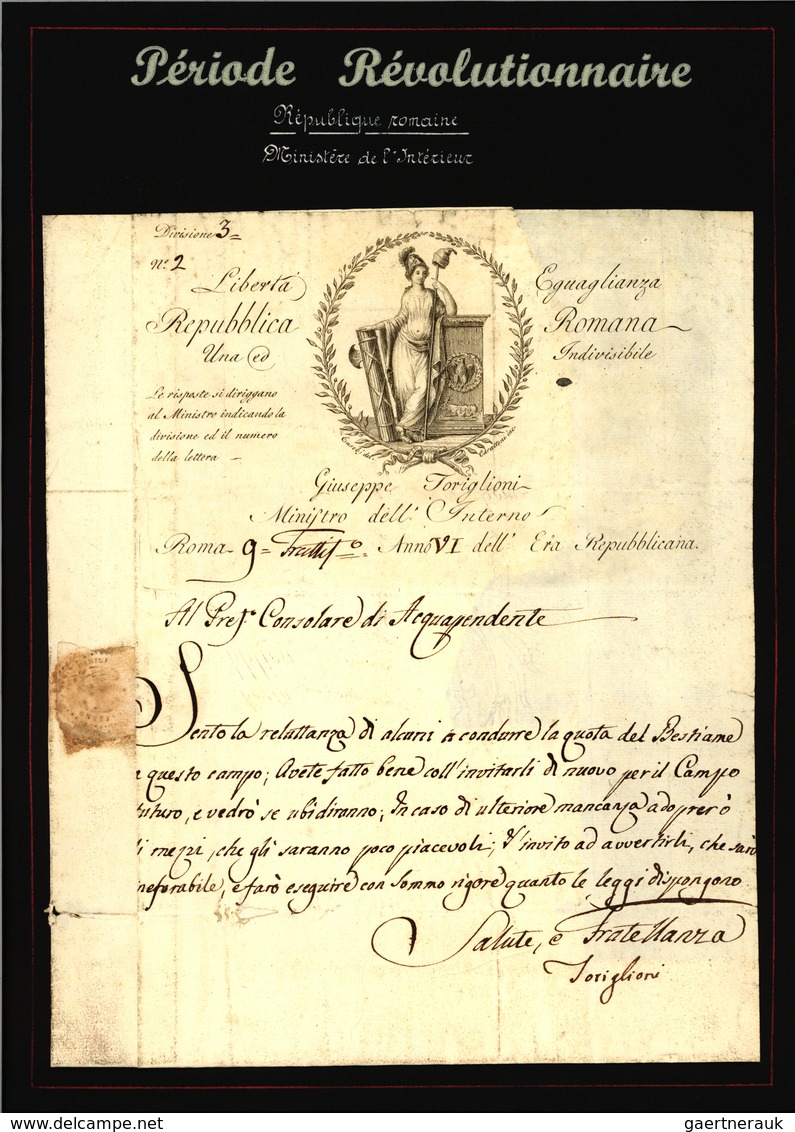 Période Révolutionnaire
République romaine
Ministère de l'Intérieur
Divisione 3=
N.º 2
Libertà Eguaglianza
Repubblica Romana
Una ed Indivisibile
Le risposte si diriggano
al Ministro indicando la
divisione ed il numero
della lettera
Giuseppe Toriglioni
Ministro dell' Interno
Roma 9= Anno VI dell' Era Repubblicana.
Al Pref. Consolare di Acquapendente
Sento la reluttanza di alcuni a condurre la quota del Bestiame
questo campo; Avete fatto bene coll'invitarli di nuovo per il Campo
futuro, e vedrò se ubidiranno; In caso di ulteriore mancanza adoprerò
li mezzi, che gli saranno poco piacevoli; V'invito ad avvertirli, che sarò
inesorabile, e farò eseguire con sommo rigore quanto le leggi dispongono
Salute, e Fratellanza
Toriglioni
delcampe.net
gaertnerauk